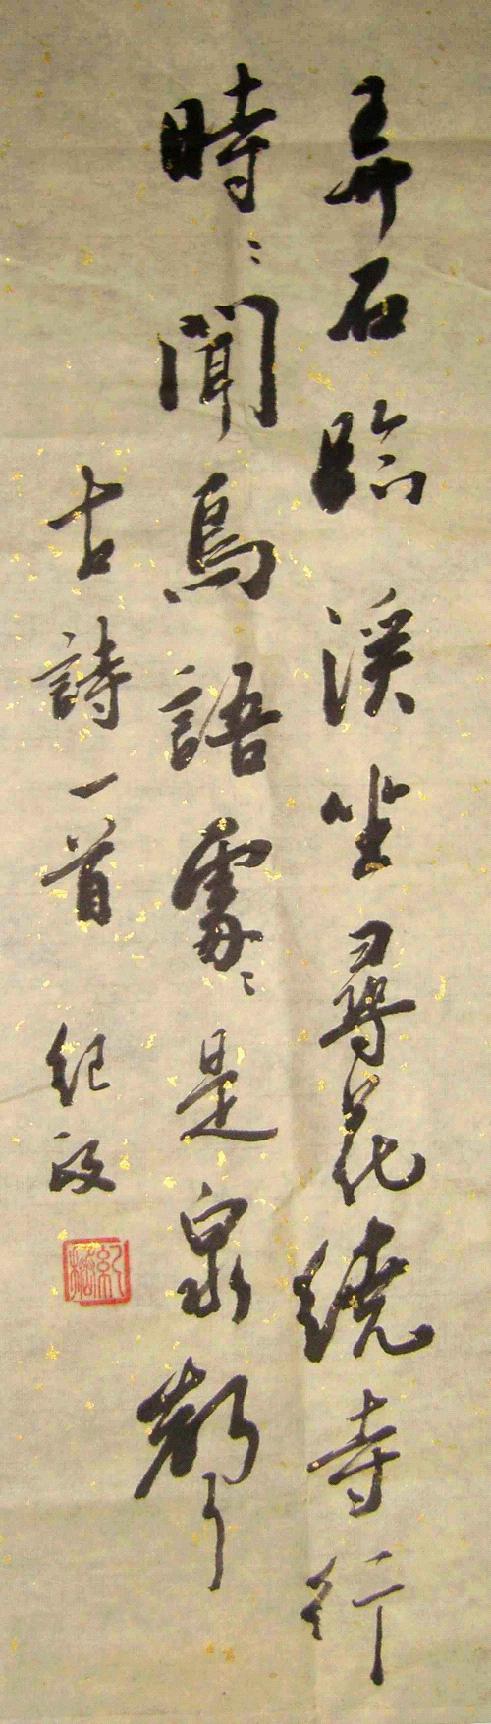 弄石臨溪坐尋花繞寺行
時〻聞鳥語處〻是泉聲
古詩一首 紀